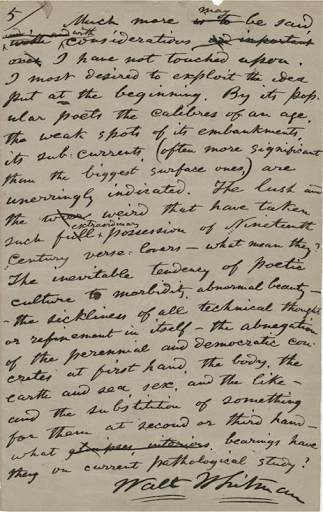 5/ Much more may be said
and with considerations
I have not touched upon.
I most desired to exploit the idea
put at the beginning. By its pop-
ular poets the calibres of an age,
the weak spots of its embankments,
its sub-currents, (often more significant
than the biggest surface ones,) are
unerringly indicated. The lush and
the weird that have taken
such extraordinary possession of Nineteenth
Century verse-lovers — what mean they?
The inevitable tendency of poetic
culture to morbidity, abnormal beauty—
— the sickliness of all technical thought
or refinement in itself — the abnegation
of the perennial and democratic con-
cretes at first hand, the body, the
earth and sea, sex, and the like —
and the substitution of something
for them at second or third hand —
what bearings have
they on current pathological study?
Walt Whitman